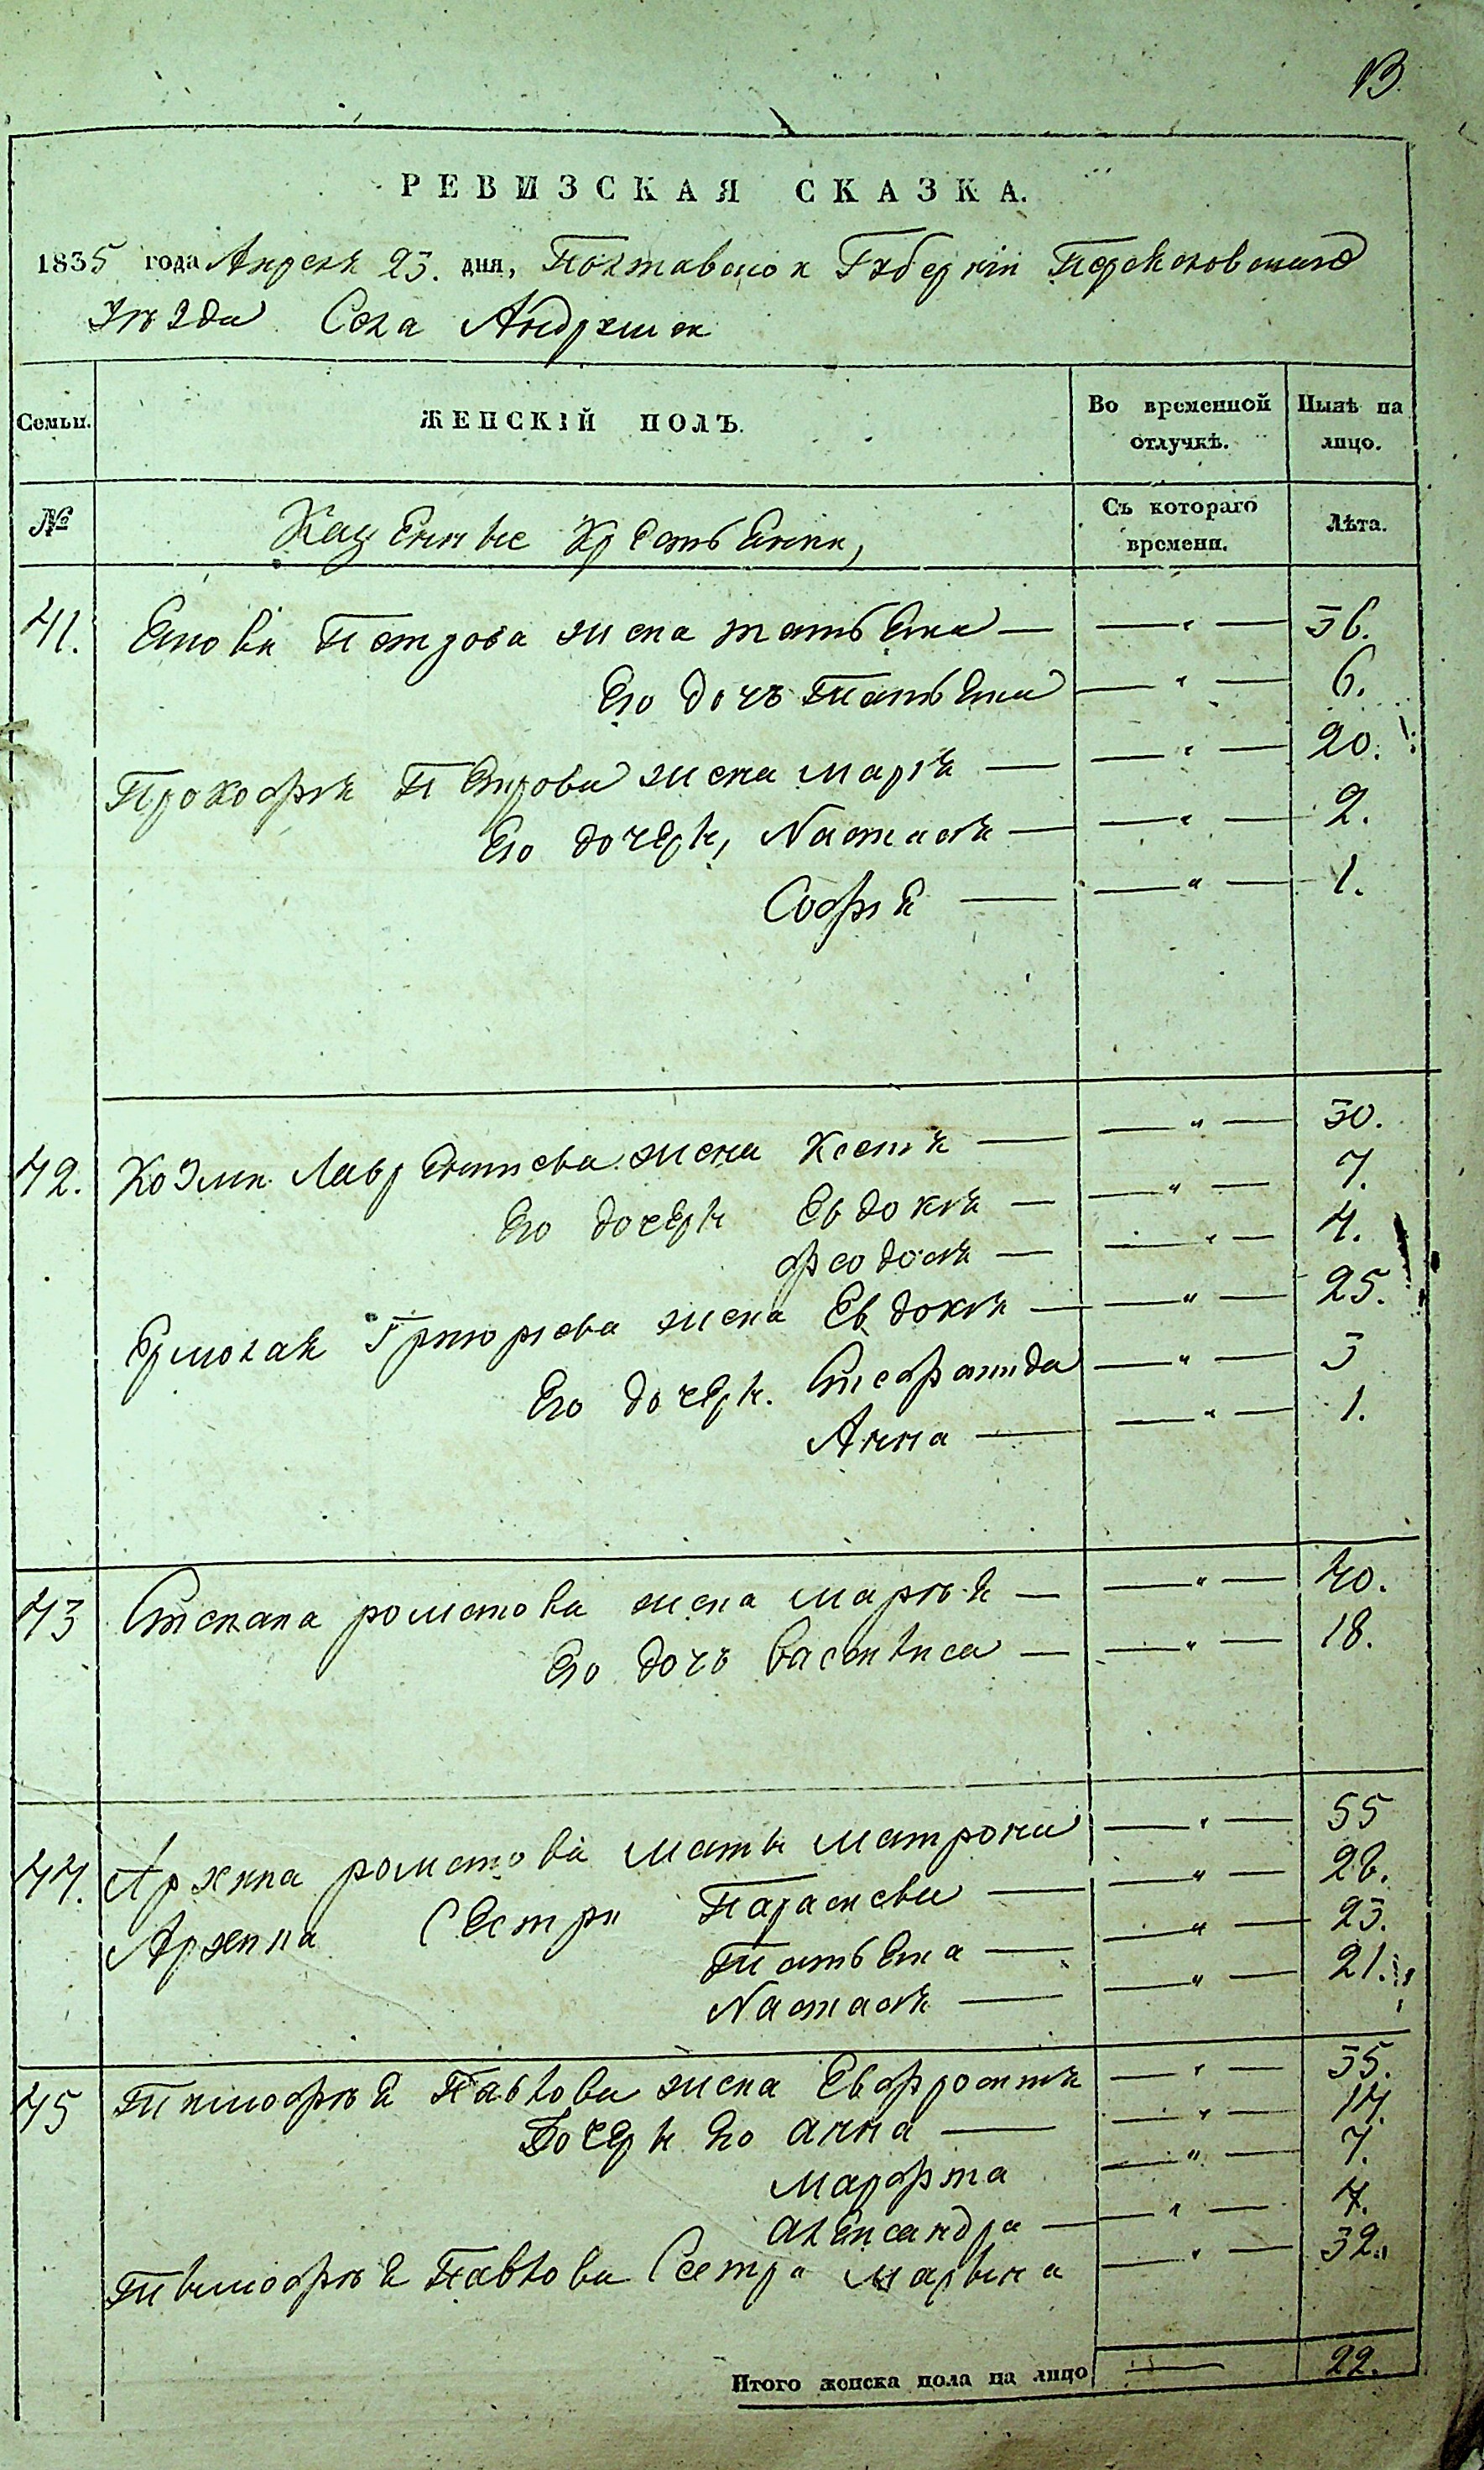 13
РЕВИЗСКАЯ СКАЗКА.
1835 года Апреля 23. дня, Полтавской Губернии
уѣзда Села Андрушек
Семьи. ЖЕНСКІЙ ПОЛЪ. Во временной отлучкѣ. Нынѣ на лицо.
№ Казенные Крестьянки, Съ котораго времени. Лѣта.
41. Якова Петрова жена татьяна — — " — 36.
Его дочь Татьяна — " — 6.
Прокофія Петрова жена марія — — " — 20.
Его дочери, Настасія — — " — 2.
Софія — — " — 1.
42. Козми Лаврентиева жена — — " — 30.
Его дочери Евдокія — — " — 7.
феодосія — — " — 4.
Ермолая Григориева жена Евдокія — — " — 25.
Его дочери. Стефанида — " — 3
Анна — — " — 1.
43 Степана романова жена марія — — " — 40.
Его дочь Василиса — — " — 18.
44. Архипа романова мать матрона — " — 55
Архипа Сестри Параскева — — " — 26.
Татьяна — — " — 23.
Настасія — — " — 21.
45 Тимофѣя Павлова жена Евфросинія — " — 35.
Дочери Его анна — — " — 14.
марфта — " — 7.
александра — — " — 4.
Тимофѣя Павлова Сестра марина — " — 32.
Итого женска пола на лицо — 22.